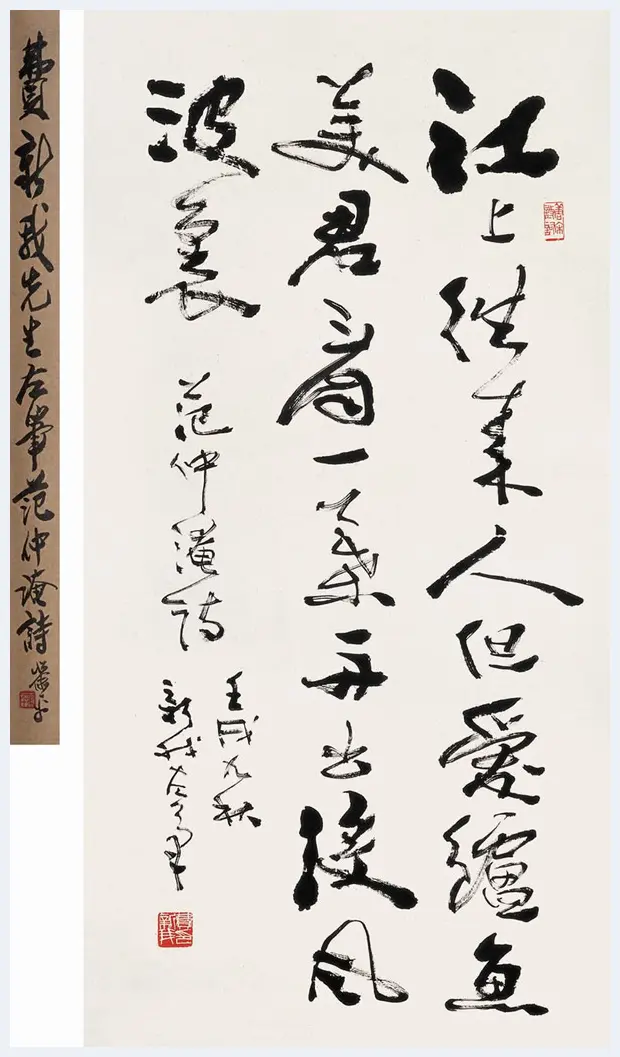 江上往来人但愛鱸魚
美君看一葉舟出没风
波裏 范仲淹詩
壬戌九秋
新我左筆
費新我先生左筆范仲淹詩